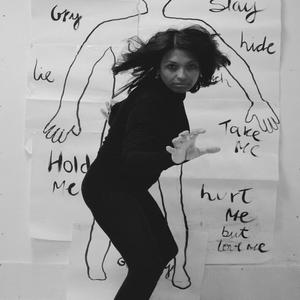 Stay
hide
lie
Take
Me
Hold
Me
hurt
Me
but
love me